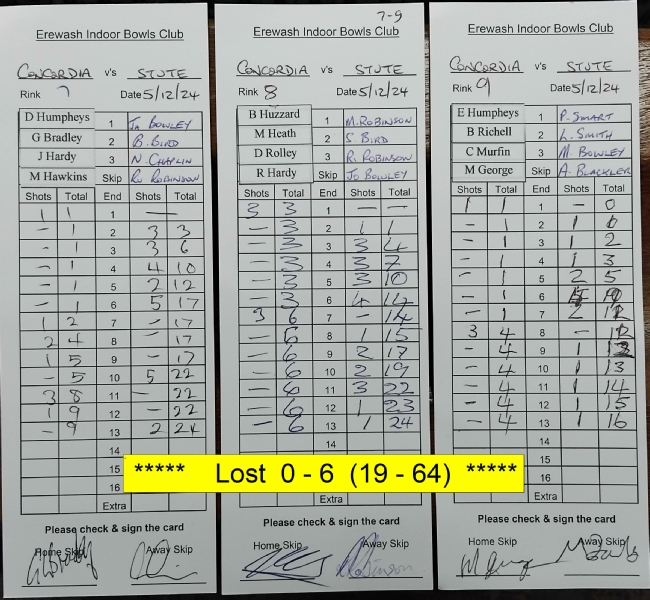 Erewash Indoor Bowls Club
CONCORDIA v's STUTE
Rink 7 Date 5/12/24
D Humpheys 1 Ja BOWLEY
G Bradley 2 B. BIRD
J Hardy 3 N CHAPLIN
M Hawkins Skip Ru ROBINSON
Shots Total End Shots Total
1 1 1 —
- 1 2 3 3
- 1 3 3 6
- 1 4 4 10
- 1 5 2 12
- 1 6 5 17
1 2 7 - 17
2 4 8 - 17
1 5 9 - 17
- 5 10 5 22
3 8 11 - 22
1 9 12 - 22
- 9 13 2 24
14
15
16
Extra
Please check & sign the card
Home Skip Away Skip
7-9
Erewash Indoor Bowls Club
CONCORDIA v's STUTE
Rink 8 Date 5/12/24
B Huzzard 1 M. ROBINSON
M Heath 2 S BIRD
D Rolley 3 R. ROBINSON
R Hardy Skip Jo BOWLEY
Shots Total End Shots Total
3 3 1 — —
- 3 2 1 1
- 3 3 3 4
- 3 4 3 7
- 3 5 3 10
- 3 6 4 14
3 6 7 - 14
- 6 8 1 15
- 6 9 2 17
- 6 10 2 19
- 6 11 3 22
- 6 12 1 23
- 6 13 1 24
14
Extra
Please check & sign the card
Home Skip Away Skip
Erewash Indoor Bowls Club
CONCORDIA v's STUTE
Rink 9 Date 5/12/24
E Humpheys 1 P. SMART
B Richell 2 L. SMITH
C Murfin 3 M BOWLEY
M George Skip A. BLACKLER
Shots Total End Shots Total
1 1 1 - 0
- 1 2 1
- 1 3 1 2
- 1 4 1 3
- 1 5 2 5
- 1 6
- 1 7 2 12
3 4 8 - 12
- 4 9 1
- 4 10 1 13
- 4 11 1 14
- 4 12 1 15
- 4 13 1 16
14
15
16
Extra
Please check & sign the card
Home Skip Away Skip
***** Lost 0 - 6 (19 - 64) *****